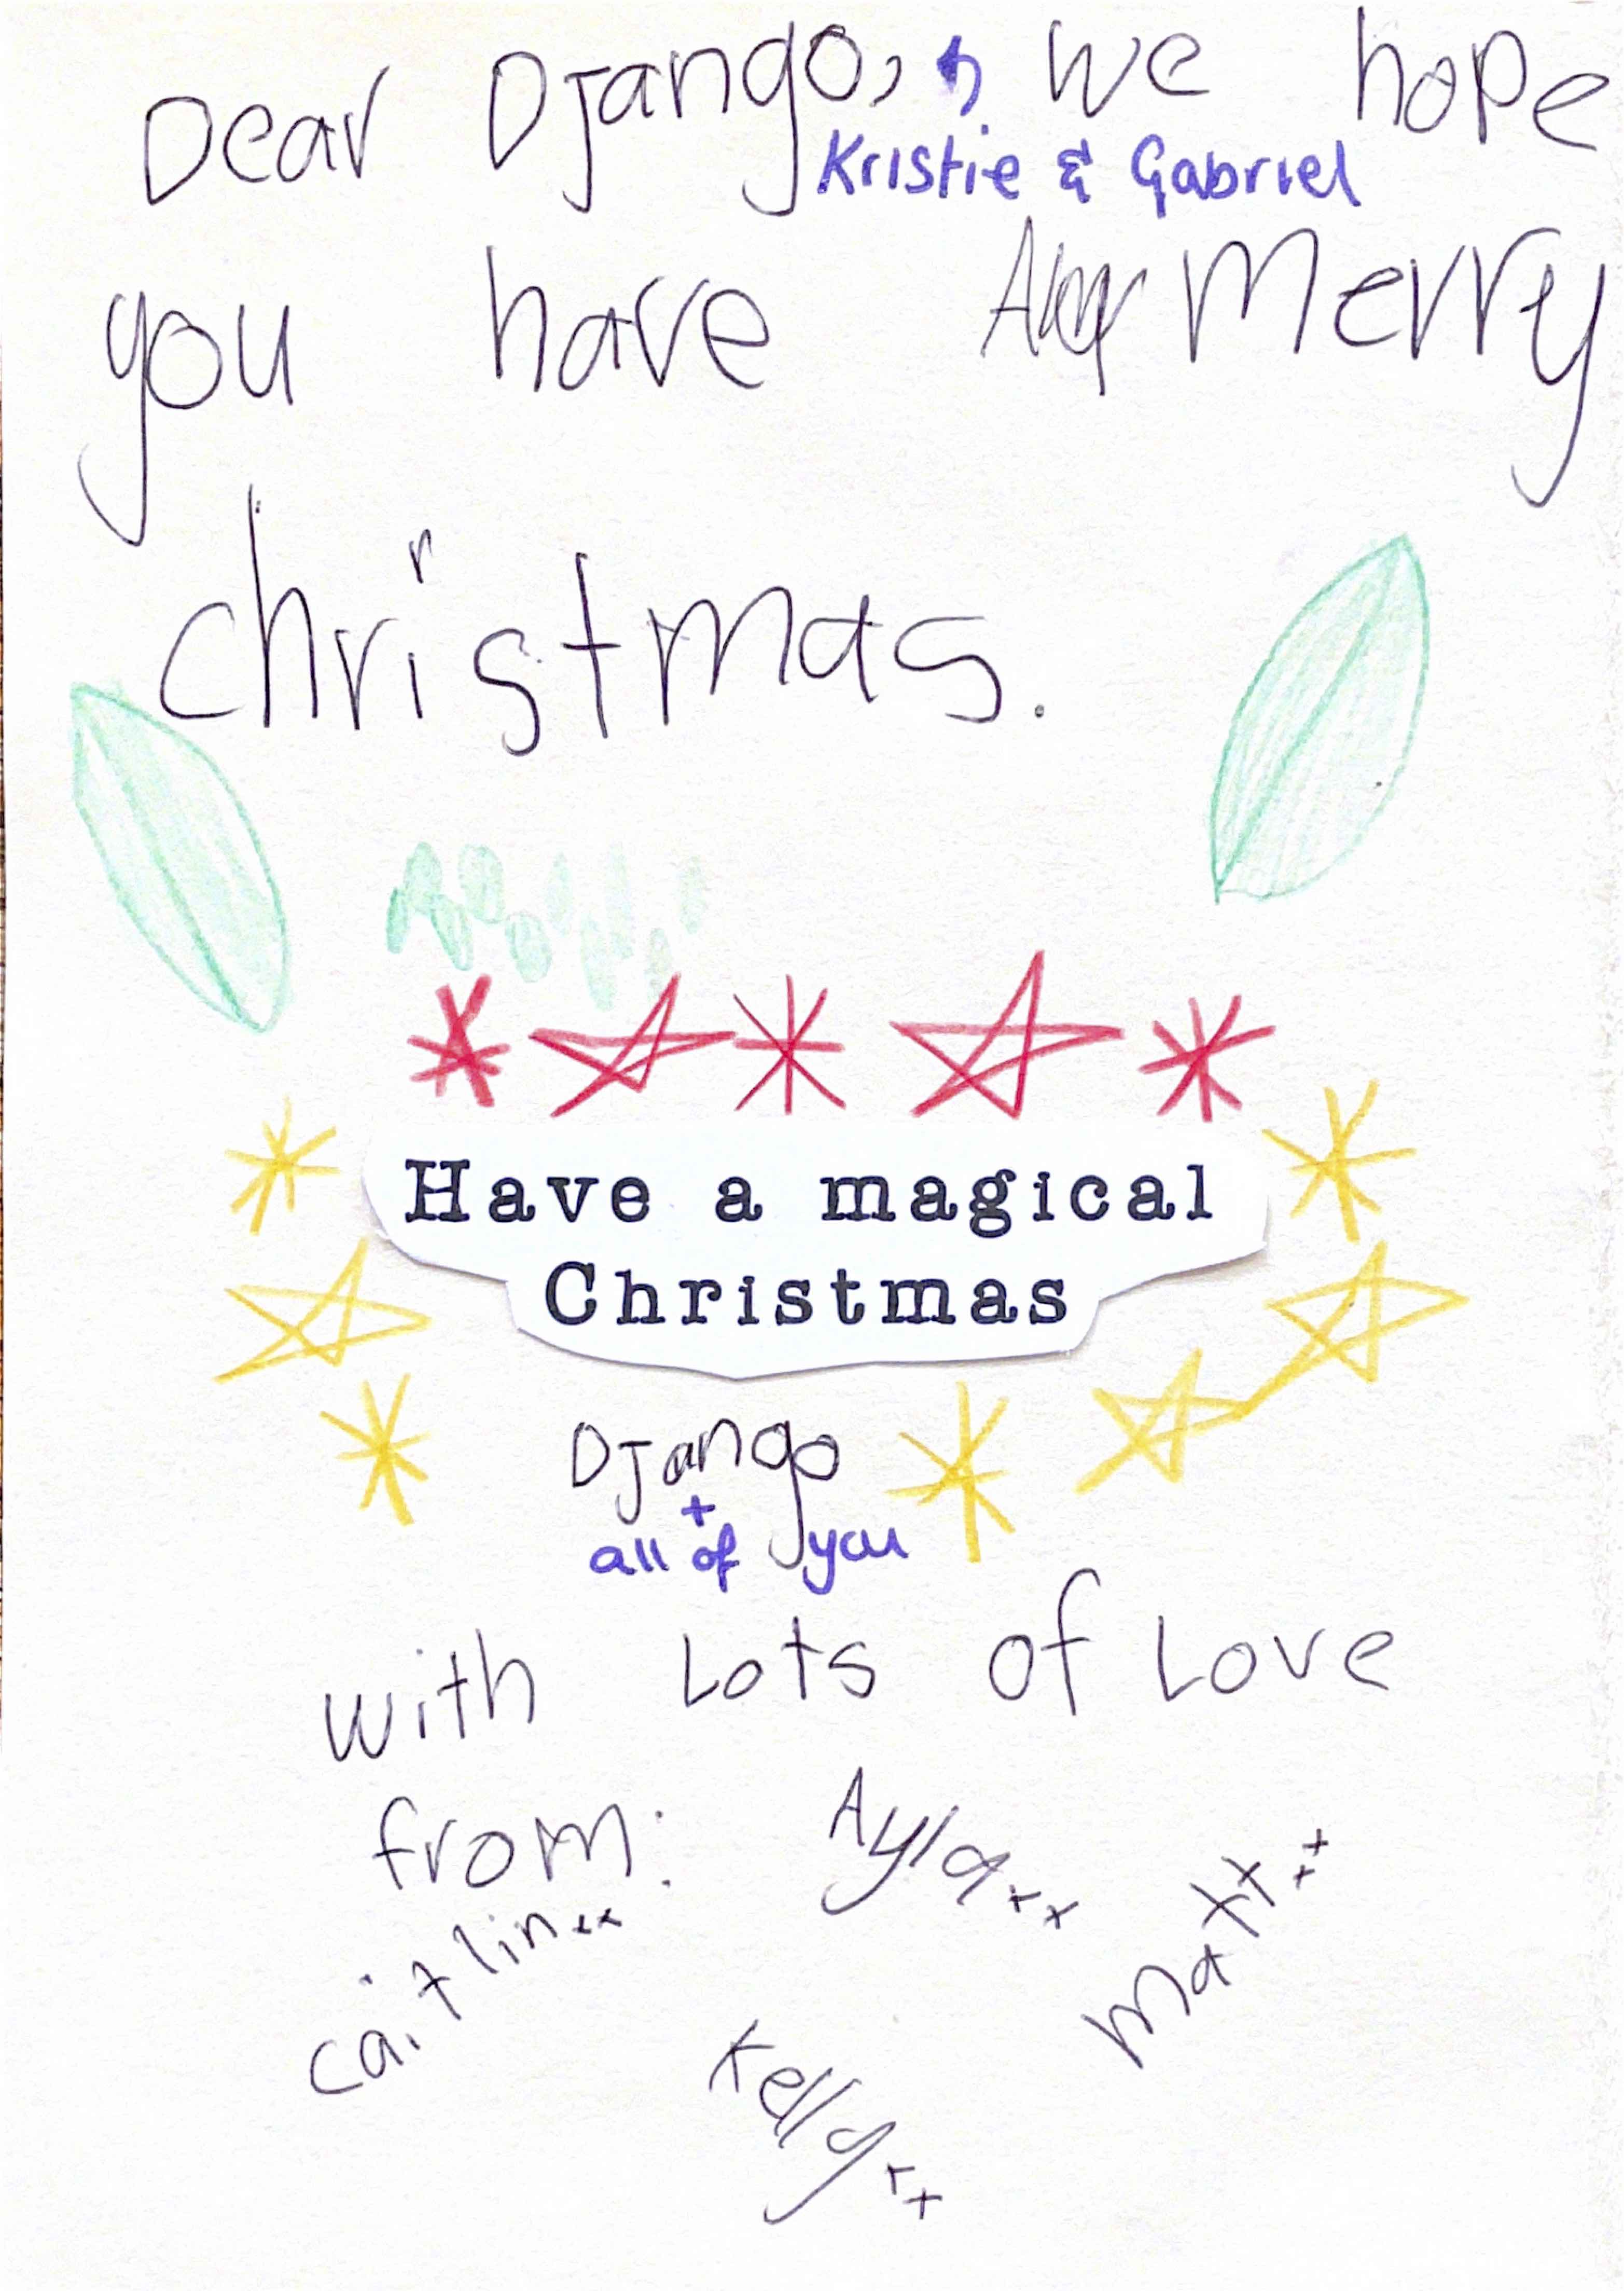 Dear Django, we hope
Kristie & Gabriel
you have A merry
r
christmas.
Have a magical
Christmas
Django
+
all of you
with Lots of Love
from: Ayla xx
caitlin xx Matt xx
Kelly xx